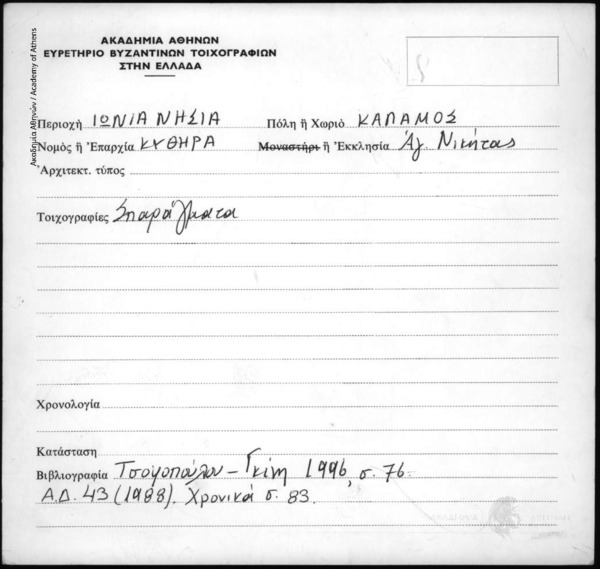 ΑΚΑΔΗΜΙΑ ΑΘΗΝΩΝ
ΕΥΡΕΤΗΡΙΟ ΒΥΖΑΝΤΙΝΩΝ ΤΟΙΧΟΓΡΑΦΙΩΝ
ΣΤΗΝ ΕΛΛΑΔΑ
Ακαδημία Αθηνών / Academy of Athens
Περιοχὴ ΙΩΝΙΑ ΝΗΣΙΑ Πόλη ἢ Χωριὸ ΚΑΠΑΜΟΣ
Νομὸς ἢ Ἐπαρχία ΚΥΘΗΡΑ Μοναστήρι ἢ Ἐκκλησία Ἁγ. Νικήτας
Ἀρχιτεκτ. τύπος
Τοιχογραφίες Σπαράγματα
Χρονολογία
Κατάσταση
Βιβλιογραφία Τσουροπούλου - Γκίνη 1996, σ. 76.
Α.Δ. 43 (1988). Χρονικά σ. 83.